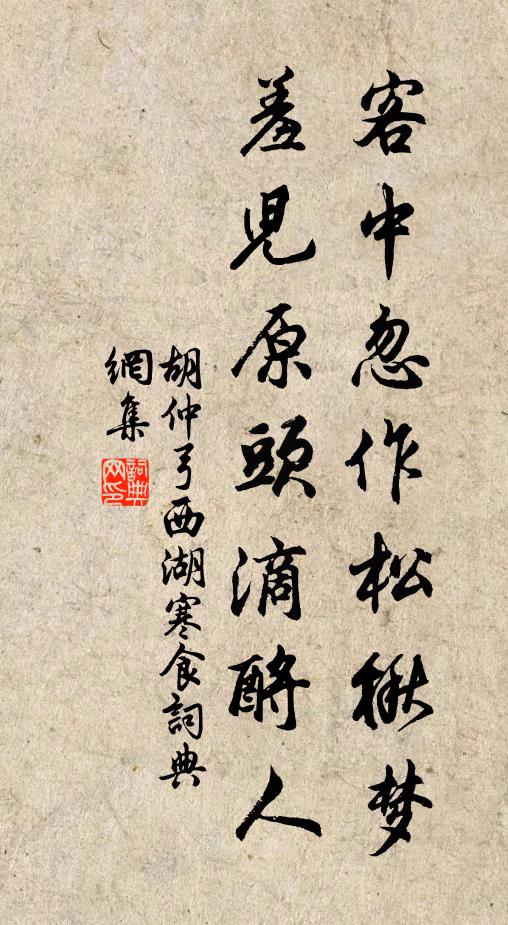 客中忽作松楸梦
羞見原頭滴酹人
胡仲弓西湖寒食詞典
網集
詞典
网印